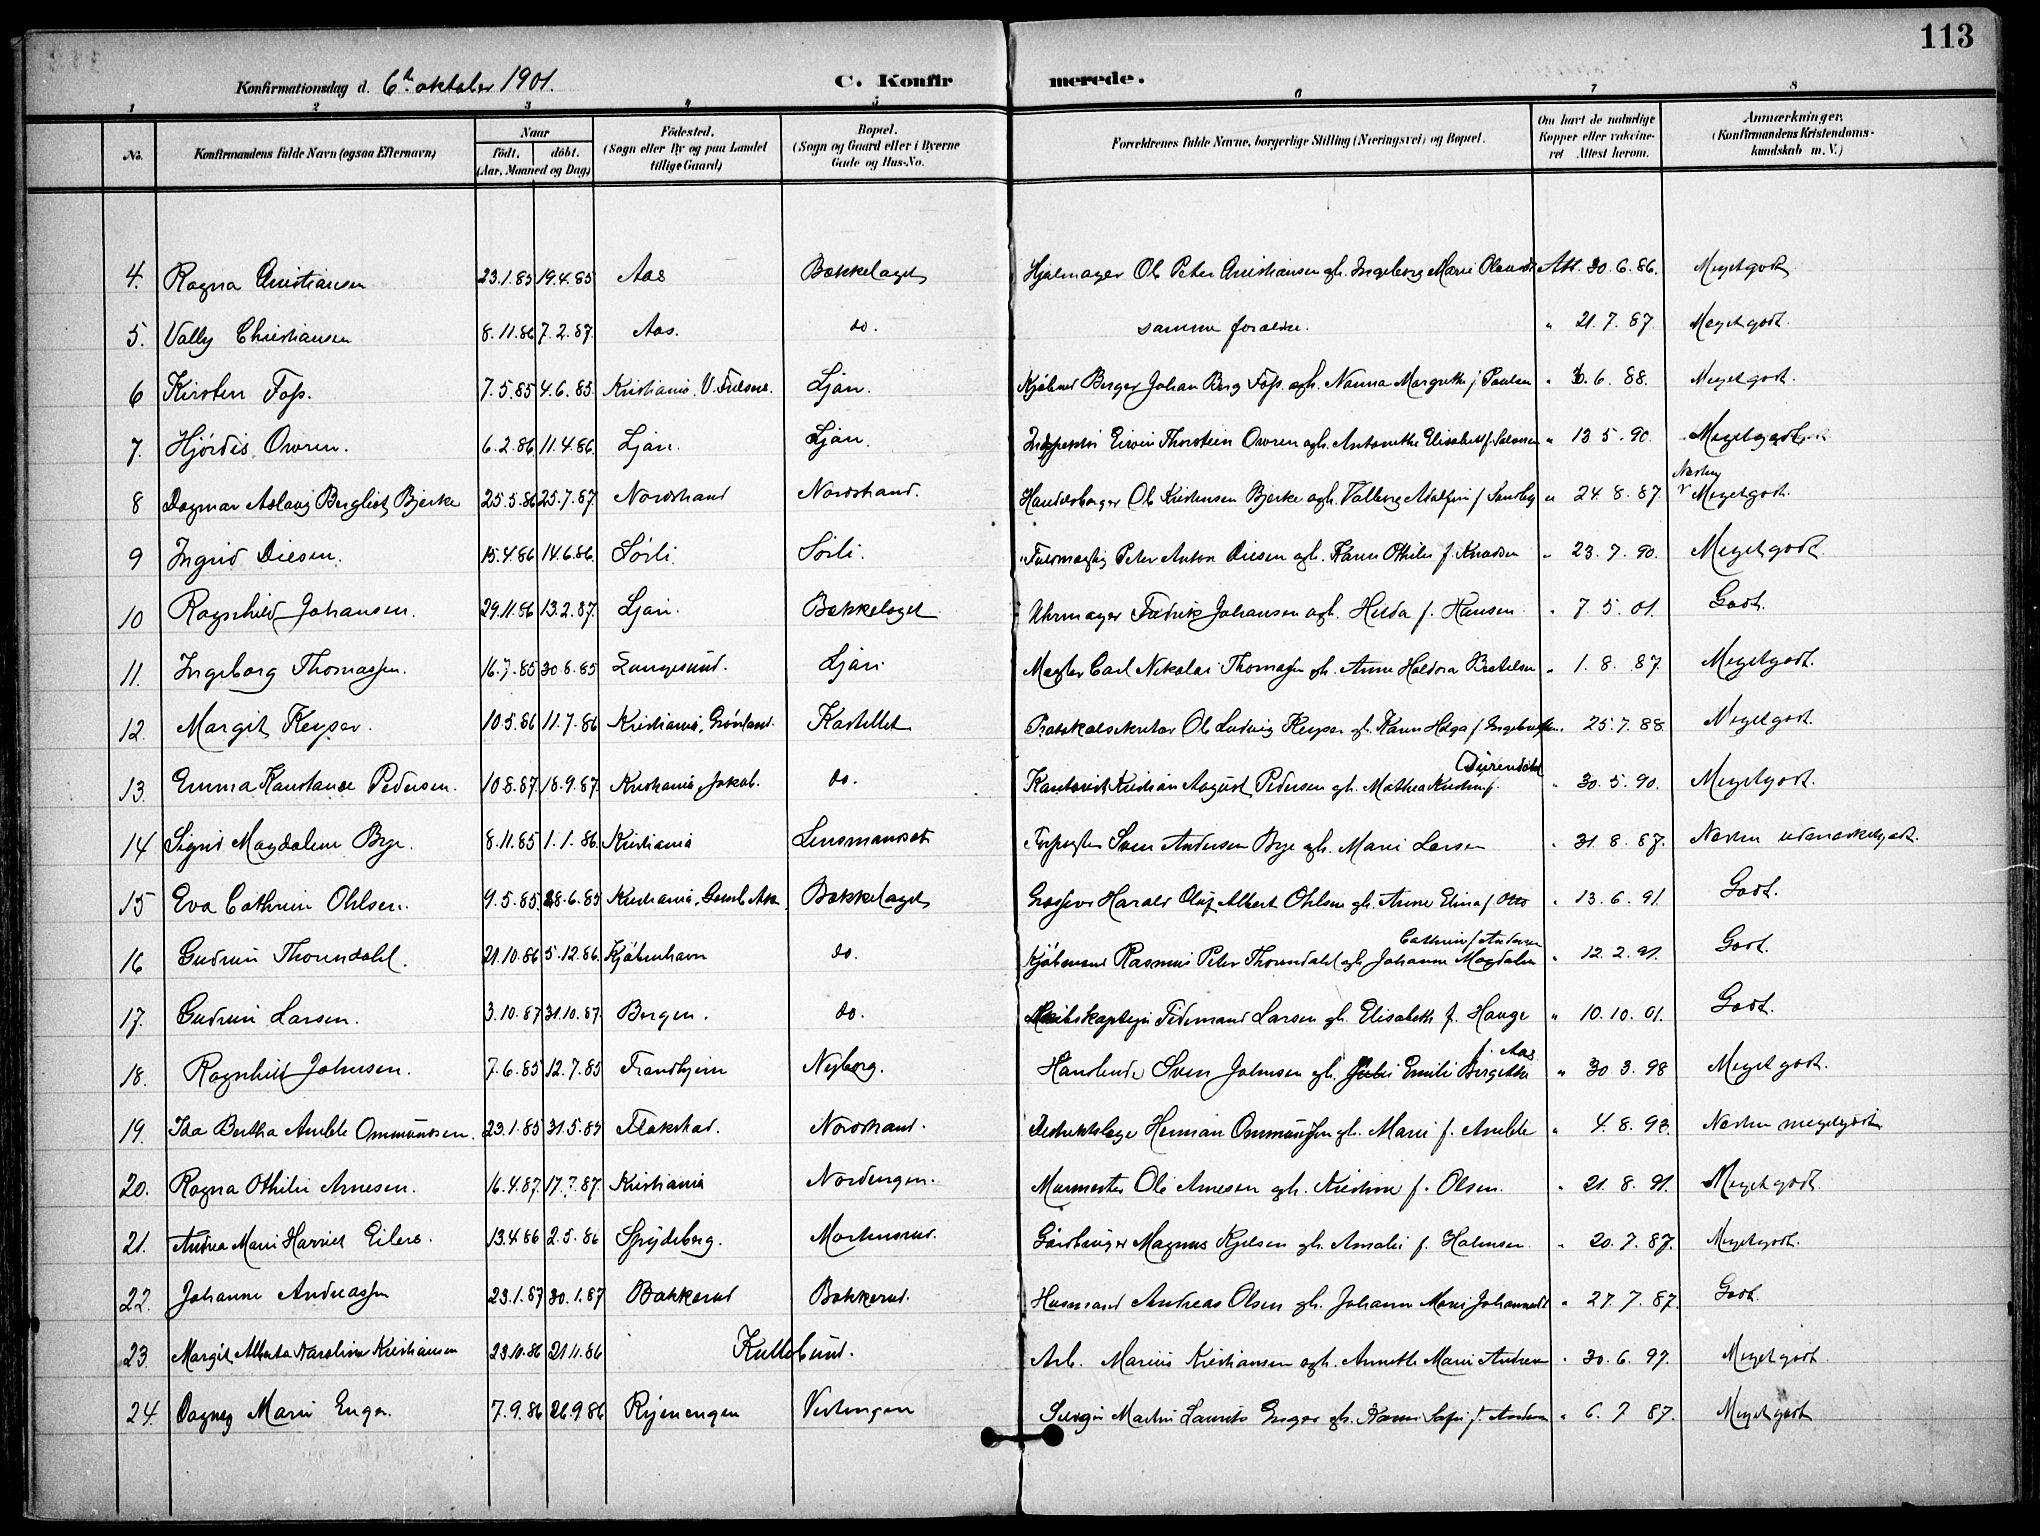 113
Konfirmationsdag d. 6te oktober 1901. C. Konfirmerede.
1 2 3 4 5 6 7 8
No. Konfirmandens fulde Navn (ogsaa Efternavn) Naar født. døbt. (Aar, Maaned og Dag) Födested. (Sogn eller By og paa Landet tillige Gaard) Bopæl. (Sogn og Gaard eller i Byerne Gade og Hus-No. Forældrenes fulde Navne, borgerlige Stilling (Næringsvei) og Bopæl. Om havt de naturlige Kopper eller vakcineret Attest herom. Anmærkninger. (Konfirmandens Kristendomskundskab m. V.)
4. Ragna Christiansen 23.1.85 19.4.85 Aas Bækkelaget Hjulmager Ole Peter Christiansen gh. Ingeborg Marie Att. 30.6.86. Megetgodt
5. Vally Christiansen 8.11.86 7.2.87. Aas. do. samme forældre. " 21.7.87. Megetgodt.
6 Kirsten Foss. 7.5.85 4.6.85. Kristiania. Ljan. Johan Berg Foss. ogh. Nanna Margrethe f. Paulsen " 30.6.88. Megetgodt.
7. Hjördis Owren. 6.2.86 11.4.86. Ljan. Ljan. Thorstein Owren ogh. Antonette Elisabeth f. " 13.5.90. Megetgodt
8 Dagmar Aslaug Bergliot Bjerke 25.5.86 25.7.87. Nordstrand Nordstrand. Ole Kristensen Bjerke ogh. Valborg " 24.8.87. Næsten Megetgodt.
9 Ingrid Diesen. 15.4.86 14.6.86. Sörli. Sörli. Fuldmægtig Peter Anton Diesen ogh. Karen Othilie f. Knudsen " 23.7.90. Megetgodt
10 Ragnhild Johansen. 29.11.86 13.2.87. Ljan. Bækkelaget Uhrmager Fredrik Johansen ogh. Hilda f. Hansen " 7.5.01. Godt.
11. Ingeborg Thomassen. 16.7.85 30.8.85 Langesund. Ljan Mægler Carl Nikolai Thomassen gh. Anne " 1.8.87 Megetgodt.
12. Margit Keyser. 10.5.86 11.7.86 Kristiania, Grönland. Kastellet Ole Ludvig Keyser gh. Karen Helga f. 25.7.88. Megetgodt.
13. Emma Konstance Pedersen. 10.8.87. 18.9.87. Kristiania, Jakob. do. Kontorist Kristian August Pedersen gh. Mathea Kristine f. " 30.5.90. Megetgodt.
14 Sigrid Magdalene Bye. 8.11.85 1.1.86. Kristiania Lensmandset Sven Andersen Bye gh. Marie Larsen " 31.8.87. Næsten udmærketgodt.
15 Eva Cathrine Ohlsen. 9.5.85. 28.6.85 Kristiania, Gamle Aker Bækkelaget Grosserer Harald Oluf Albert Ohlsen gh. Anne Elina f. " 13.6.91. Godt.
16 Gudrun Thorndahl. 21.10.86 5.12.86. Kjöbenhavn do. Kjöbmand Rasmus Peter Thorndahl gh. Johanne Magdalene Cathrine f. Andersen " 12.2.91. Godt.
17. Gudrun Larsen. 3.10.87 31.10.87 Bergen. do. Skibskaptejn Larsen gh. Elisabeth f. Hauge " 10.10.01. Godt.
18. Ragnhild Johnsen. 7.6.85 12.7.85 Trondhjem Nyborg. Handlende Sven Johnsen gh. Emilie Birgitte f. Aas " 30.3.98 Megetgodt.
19. Ida Bertha Amble Ommundsen. 23.1.85 31.5.85 Flakstad. Nordstrand. Distriktslæge Herman Ommundsen gh. Marie f. Amble " 4.8.93. Næsten megetgodt
20. Ragna Othilie Arnesen. 16.4.87. 17.?.87. Kristiania Nordengen. Murmester Ole Arnesen gh. Kristine f. Olsen. " 21.8.91. Megetgodt.
21. Andrea Marie Harriet Eilers. 13.4.86 2.5.86 Spydeberg. Mortensrud. Magnus gh. Amalie f. Halvorsen. " 20.7.87. Megetgodt.
22. Johanne Andreassen 23.1.87 30.1.87 Bakkerud Bakkerud. Husmand Andreas Olsen gh. Johanne Marie " 27.7.87. Godt.
23. Margit Alberta Karoline Kristiansen 23.10.86 21.11.86 Kullebund. Arb. Marius Kristiansen ogh. Annette Marie " 30.6.97. Megetgodt.
24. Dagny Marie Enger. 7.9.86 26.9.86 Ryenengen Vestengen Selveier Martin Laurits Enger gh. " 6.7.87. Megetgodt